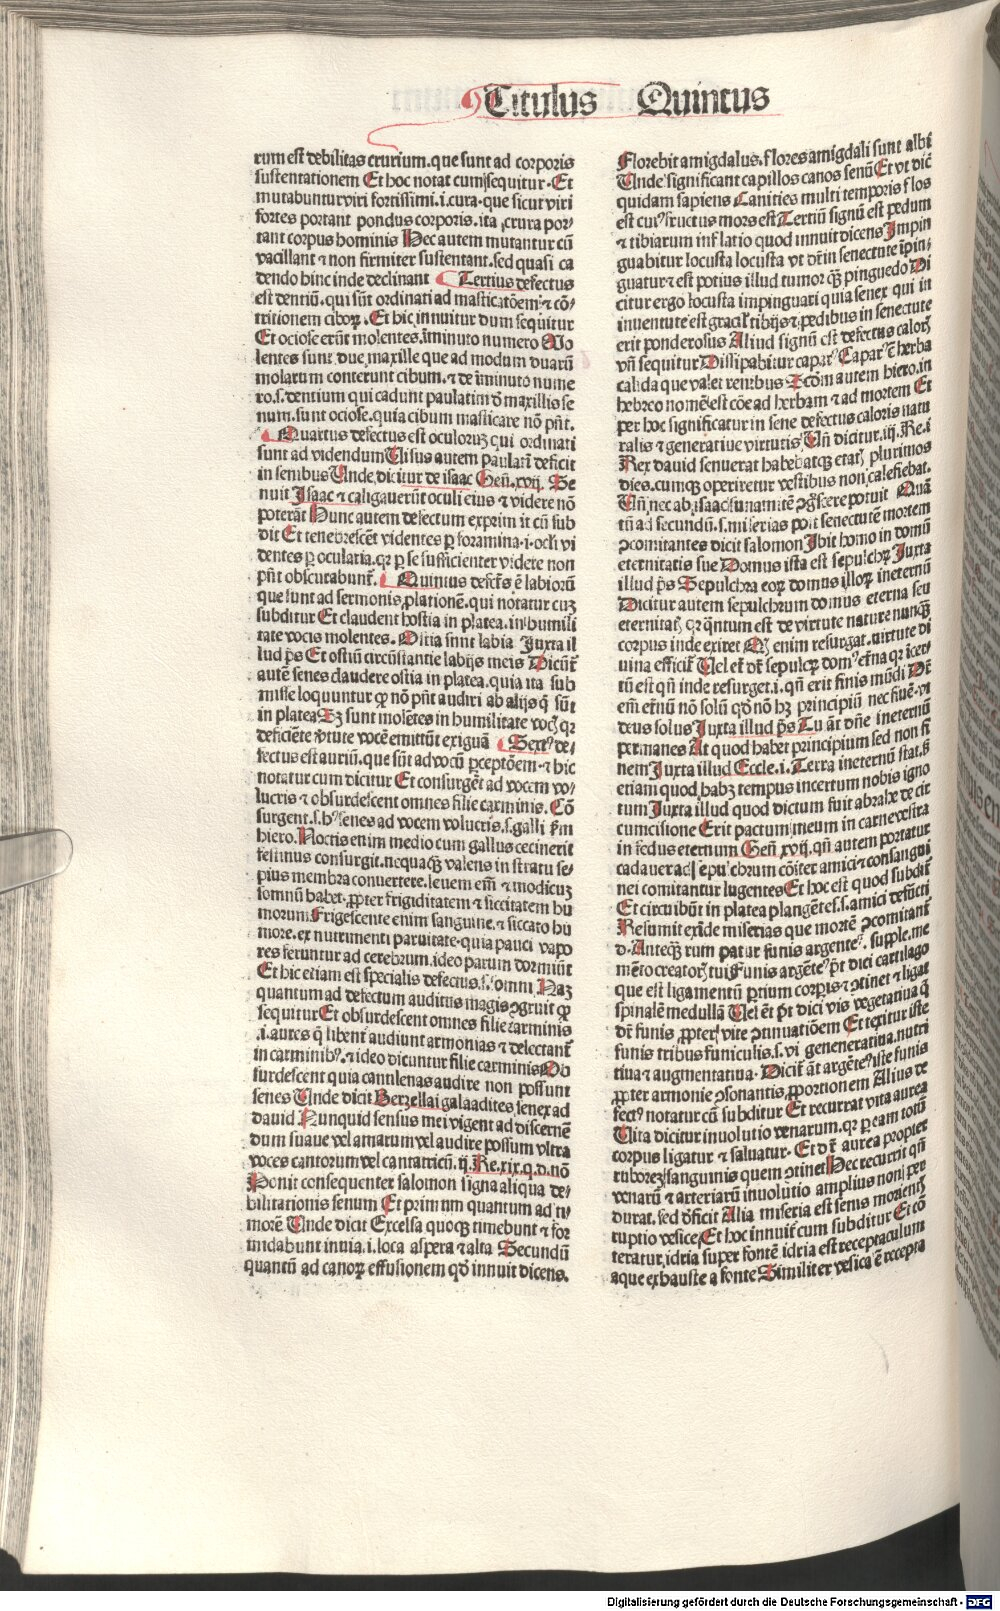 Titulus Quintus
rum est debilitas crurium. que sunt ad corporis
sustentationem Et hoc notat cum sequitur. Et
mutabuntur viri fortissimi. i. cura. que sicut viri
fortes portant pondus corporis. ita crura por⸗
tant corpus hominis Hec autem mutantur cū
vacillant ⁊ non firmiter sustentant. sed quasi ca
dendo hinc inde declinant Tertius defectus
est dentiū. qui sūt ordinati ad masticatōem ⁊ cō⸗
tritionem ciboꝝ. Et hic innuitur dum sequitur
Et ociose erūt molentes. īminuto numero Mo
lentes sunt due maxille que ad modum duarū
molarum conterunt cibum. ⁊ de īminuto nume
ro. s. dentium qui cadunt paulatim ď maxillis se
num. sunt ociose. quia cibum masticare nō pn̄t.
Quartus defectus est oculoꝝ qui ordinati
sunt ad videndum Uisus autem paulati deficit
in senibus Unde dicitur de isaac Geñ. xvij. Se
nuit Isaac ⁊ caligauerūt oculi eius ⁊ videre nō
poterāt Hunc autem defectum exprimit cū sub
dit Et tenebrescēt videntes ꝑ foramina. i. ocli vi
dentes ꝑ ocularia. qꝛ ꝑ se sufficienter videre non
pn̄t obscurabunť. Quintus defctꝰ ē labiorū
que sunt ad sermonis ꝓlationē. qui notatur cuꝫ
subditur Et claudent hostia in platea. in humili
tate vocis molentes. Ostia snnt labia Juxta il
lud pš Et ostiū circūstantie labijs meis Dicūť
autē senes claudere ostia in platea. quia ita sub
misse loquuntur ꝙ nō pn̄t audiri ab alijs q̄ sūt
in platea Sꝫ sunt molētes in humilitate vocꝭ qꝛ
deficiēte v̓tute vocē emittūt exiguā Sextꝰ de⸗
fectus est auriū. que sūt ad vocū ꝑceptōem. ⁊ hic
notatur cum dicitur Et consurgēt ad vocem vo⸗
lucris ⁊ obsurdescent omnes filie carminis. Cō
surgent. s. hꝰ senes ad vocem volucris. s. galli ẜm
hiero. Noctis enim medio cum gallus cecinerit
festinus consurgit. nequaq̄ꝫ valens in stratu se⸗
pius membra conuertere. leuem em̄ ⁊ modicuꝫ
somnū habet. ꝓpter frigiditatem ⁊ siccitatem hu
morum Frigescente enim sanguine. ⁊ siccato hu
more. ex nutrimenti paruitate. quia pauci vapo
res feruntur ad cerebrum. ideo parum dormiūt
Et hic etiam est specialis defectus. s. somni Naꝫ
quantum ad defectum auditus magis ꝯgruit ꝙ
sequitur Et obsurdescent omnes filie carminis
.i. aures q̄ libenť audiunt armonias ⁊ delectanť
in carminibꝰ. ⁊ ideo dicuntur filie carminis Ob
surdescent quia cantilenas audire non possunt
senes Unde dicit Berzellai galaadites senex ad
dauid Nunquid sensus mei vigent ad discernē
dum suaue vel amarum vel audire possum vltra
voces cantorum vel cantatricū. ij. Re. xix. q. d. nō
Ponit consequenter salomon signa aliqua de⸗
bilitationis senum Et primum quantum ad ti
morē Unde dicit Excelsa quoqꝫ timebunt ⁊ for
midabunt in via. i. loca aspera ⁊ alta Secundū
quantū ad canoꝝ effusionem qď innuit dicens.
Florebit amigdalus. flores amigdali sunt albi
Unde significant capillos canos senū Et vt dic̄
quidam sapiens Canities multi temporis flos
est cuiꝰ fructus mors est Tertiū signū est pedum
⁊ tibiarum inflatio quod innuit dicens Impin
guabitur locusta locusta vt dr̄ in senectute īpin⸗
guatur ⁊ est potius illud tumor q̄ꝫ pinguedo Di
citur ergo locusta impinguari quia senex qui in
iuuentute est gracil̓ tibijs ⁊ pedibus in senectute
erit ponderosus Aliud signū est defectus calorꝭ
vn̄ sequitur Dissipabitur caparꝰ Caparꝰ ē herba
calida que valet renibus Scd̄m autem hiero. in
hebreo nomē est cōe ad herbam ⁊ ad mortem Et
per hoc significatur in sene defectus caloris natu
ralis ⁊ generatiue virtutis Un̄ dicitur. iij. Re. i
Rex dauid senuerat habebatqꝫ etatꝭ plurimos
dies. cumqꝫ operiretur vestibus non calefiebat.
Un̄ nec abisaac sunamitē ꝯg̓scere potuit Quā
tū ad secundū. s. miserias post senectutē mortem
ꝯcomitantes dicit salomon Ibit homo in domū
eternitatis sue Domus ista est sepulchꝝ Juxta
illud pš Sepulchra eoꝝ domus illoꝝ ineternū
Dicitur autem sepulchrum domus eterna seu
eternitatꝭ qꝛ q̄ntum est de virtute nature nunq̄ꝫ
corpus inde exiret Sꝫ enim resurgat. virtute di
uina efficiť Uel eť dr̄ sepulcꝝ domꝰ et̓na qꝛ īcer⸗
tū est qn̄ inde resurget. i. qn̄ erit finis mūdi Dr̄
em̄ et̓nū nō solū qď nō hꝫ principiū nec finē. vt
deus solus Juxta illud pš Tu āt dn̄e ineternū
permanes At quod habet principium sed non fi
nem Juxta illud Eccle. i. Terra ineternū stat. ẜꝫ
etiam quod habꝫ tempus incertum nobis igno
tum Juxta illud quod dictum fuit abrahe de cir
cumcisione Erit pactum meum in carne vestra
in fedus eternum Geñ xvij. qn̄ autem portatur
cadauer ad sepulchrum cōiter amici ⁊ consangui
nei comitantur lugentes Et hoc est quod subdiť
Et circuibūt in platea plangētes. s. amici defūcti
Resumit exinde miserias que mortē ꝯcomitanť
d. Anteq̄ꝫ rumpatur funis argenteꝰ. supple. me
mēto creatorꝭ tui Funis argēteꝰ p̄t dici cartilago
que est ligamentū ꝑtium corꝑis ⁊ ꝯtinet ⁊ ligat
spinalē medullā Uel ēt p̄t dici vis vegetatiua q̄
dr̄ funis ꝓpterꝭ vite ꝯtinuatiōem Et teritur iste
funis tribus funiculis. s. vi generatiua. nutri
tiua ⁊ augmentatiua. Diciť āt argēteꝰ iste funis
ꝓpter armonie ꝯsonantis ꝓportionem Alius de
fectꝰ notatur cū subditur Et recurrat vita aurea
Uita dicitur inuolutio venarum. qꝛ ꝑ eam totū
corpus ligatur ⁊ saluatur. Et dr̄ aurea propter
ruborē sanguinis quem ꝯtinet Hec recurrit qn̄
venarū ⁊ arteriarū inuolutio amplius non per
durat. sed deficit Alia miseria est senis moriētꝭ
ruptio vesice. Et hoc innuiť cum subditur Et cō
teratur. idria super fontē. idria est receptaculum
aque exhauste a fonte Similiter vesica ē recepta
Digitalisierung gefördert durch die Deutsche Forschungsgemeinschaft - DFG